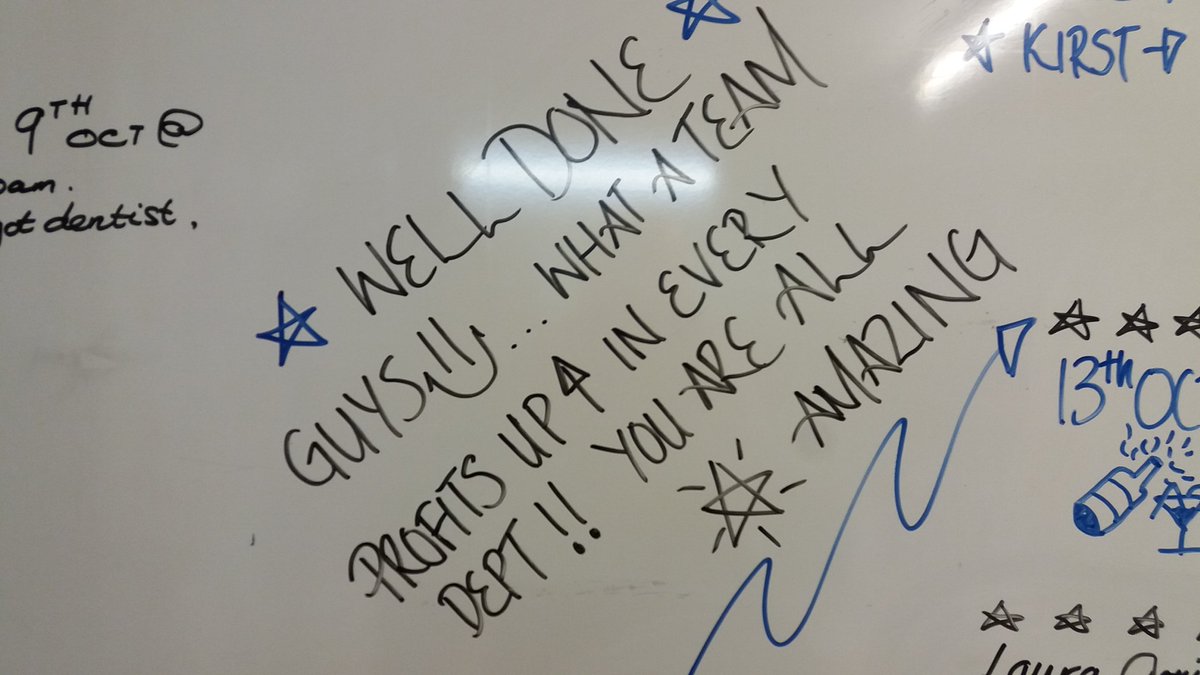 9TH OCT @
got dentist.
WELL DONE
GUYS!!! ... WHAT A TEAM
PROFITS UP IN EVERY
DEPT!! YOU ARE ALL
AMAZING
KIRST
13th OC
Laura